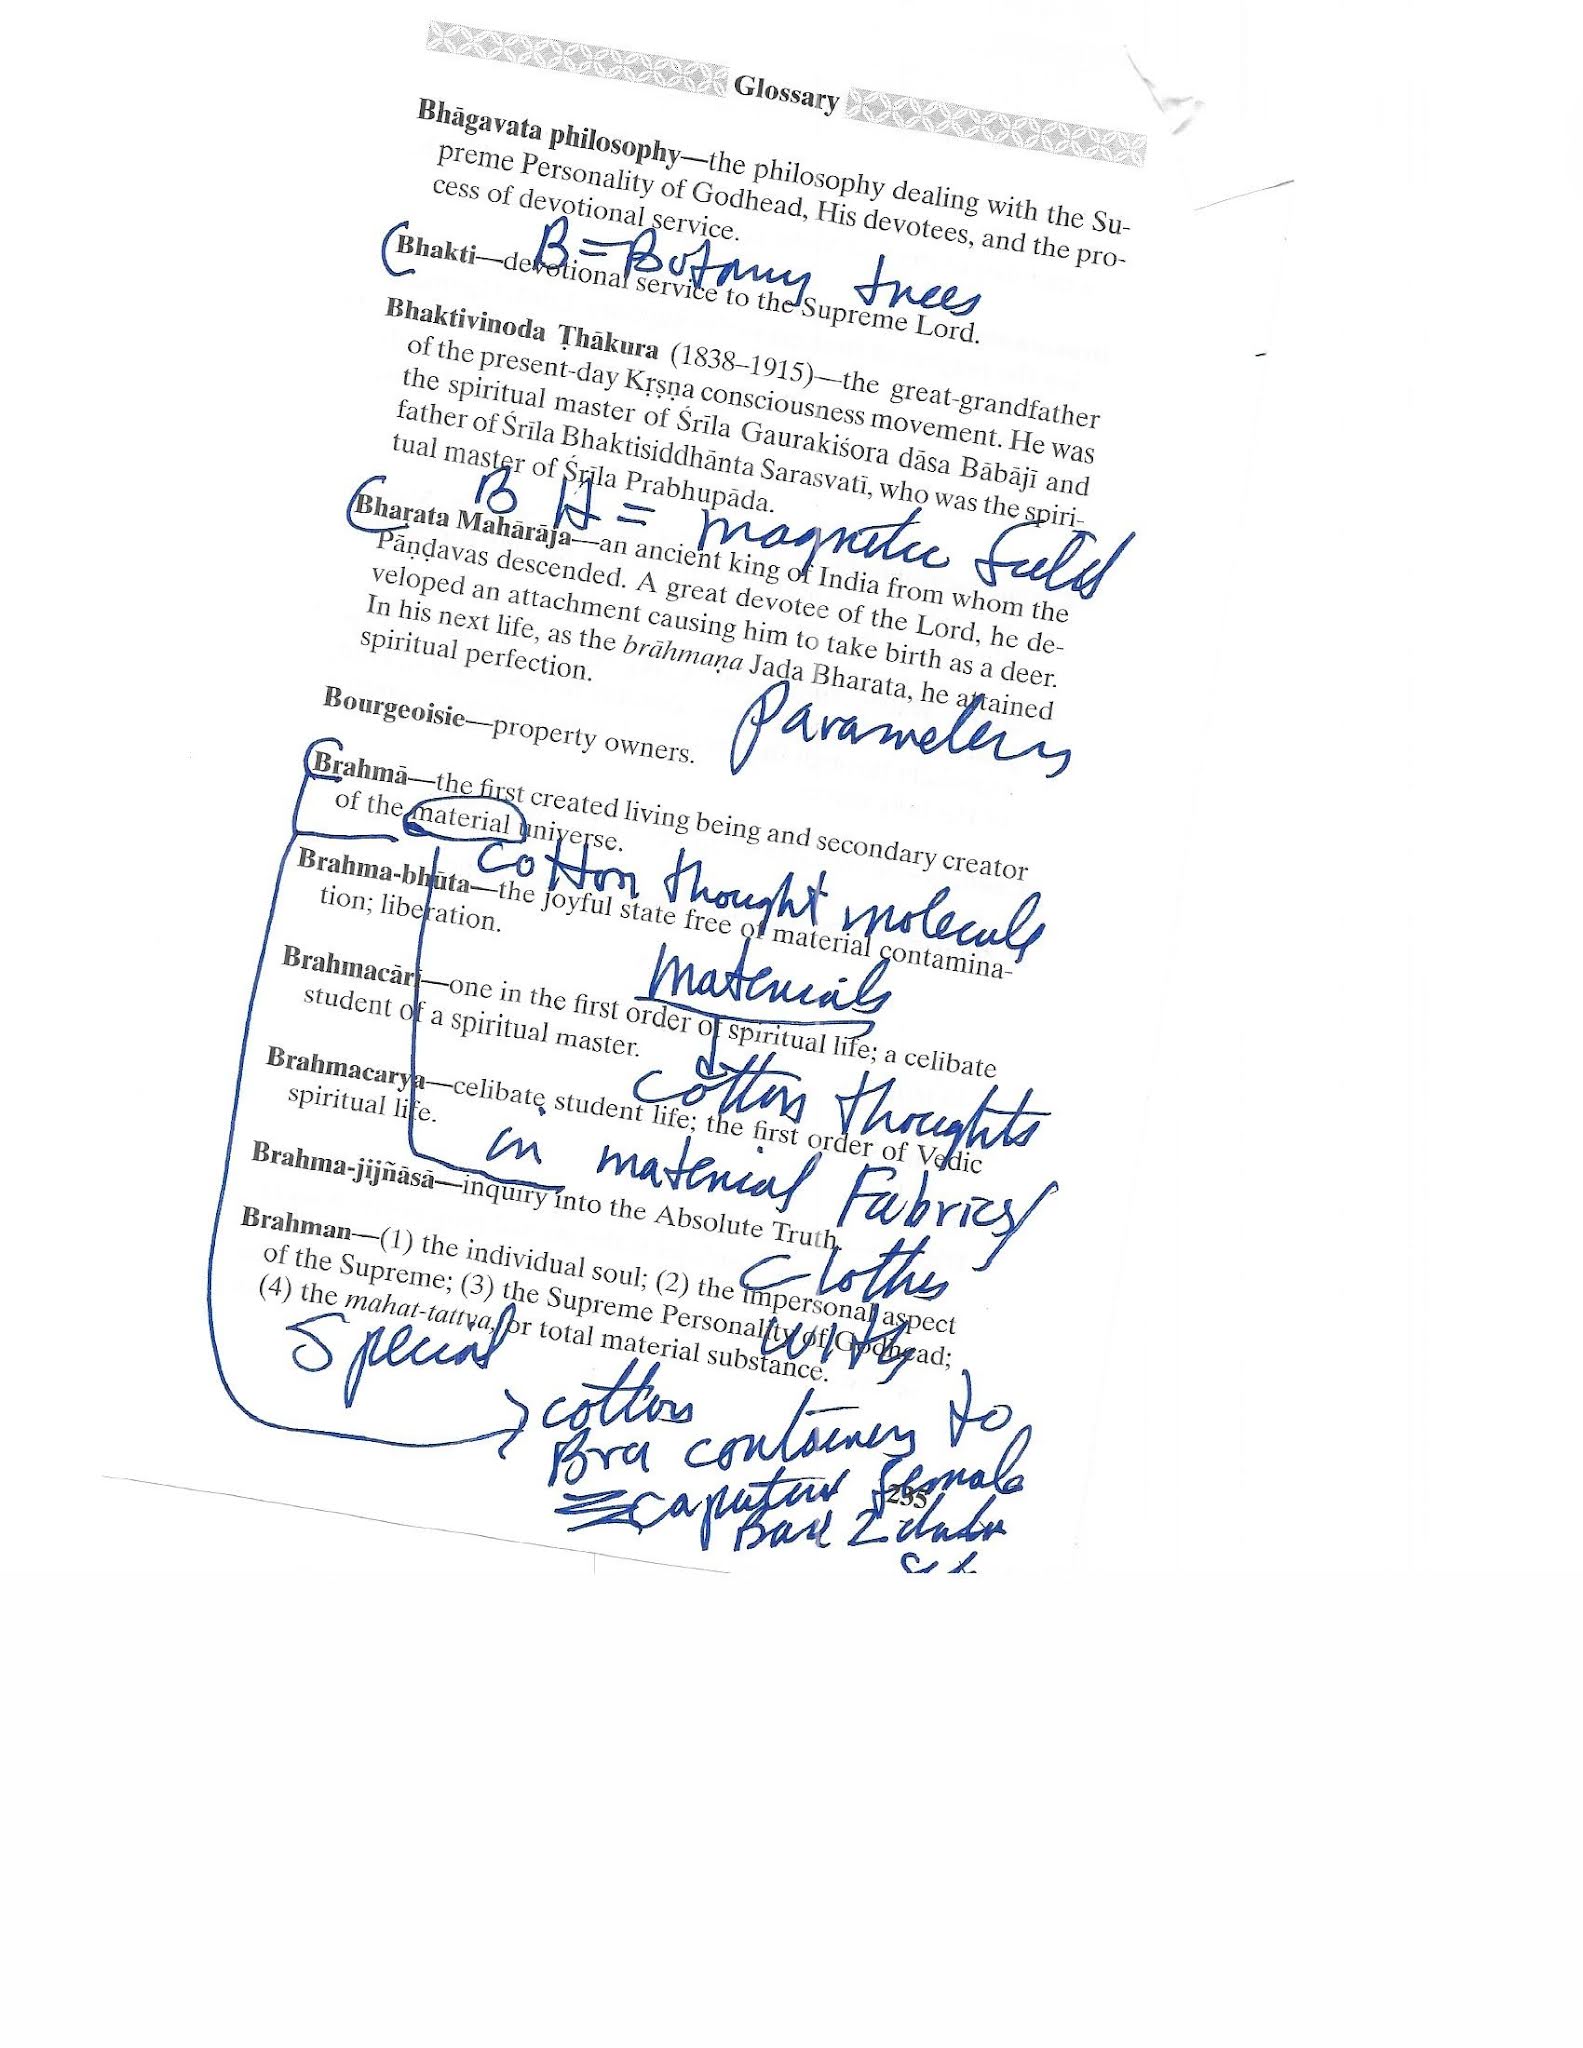 Glossary
Bhāgavata philosophy—the philosophy dealing with the Su-
preme Personality of Godhead, His devotees, and the pro-
cess of devotional service.
B = Botany trees
Bhakti—devotional service to the Supreme Lord.
Bhaktivinoda Ṭhākura (1838–1915)—the great-grandfather
of the present-day Kṛṣṇa consciousness movement. He was
the spiritual master of Śrīla Gaurakiśora dāsa Bābājī and
father of Śrīla Bhaktisiddhānta Sarasvatī, who was the spiri-
tual master of Śrīla Prabhupāda.
B H = magnetic field
Bharata Mahārāja—an ancient king of India from whom the
Pāṇḍavas descended. A great devotee of the Lord, he de-
veloped an attachment causing him to take birth as a deer.
In his next life, as the brāhmaṇa Jada Bharata, he attained
spiritual perfection.
Parameters
Bourgeoisie—property owners.
Brahmā—the first created living being and secondary creator
of the material universe.
cotton thought molecule
Brahma-bhūta—the joyful state free of material contamina-
tion; liberation.
materials
Brahmacārī—one in the first order of spiritual life; a celibate
student of a spiritual master.
cotton thoughts
Brahmacarya—celibate student life; the first order of Vedic
spiritual life.
in material Fabrics/
Brahma-jijñāsā—inquiry into the Absolute Truth.
clothes
Brahman—(1) the individual soul; (2) the impersonal aspect
of the Supreme; (3) the Supreme Personality of Godhead;
(4) the mahat-tattva, or total material substance.
with
Special
cotton to
Bra containers
female
235